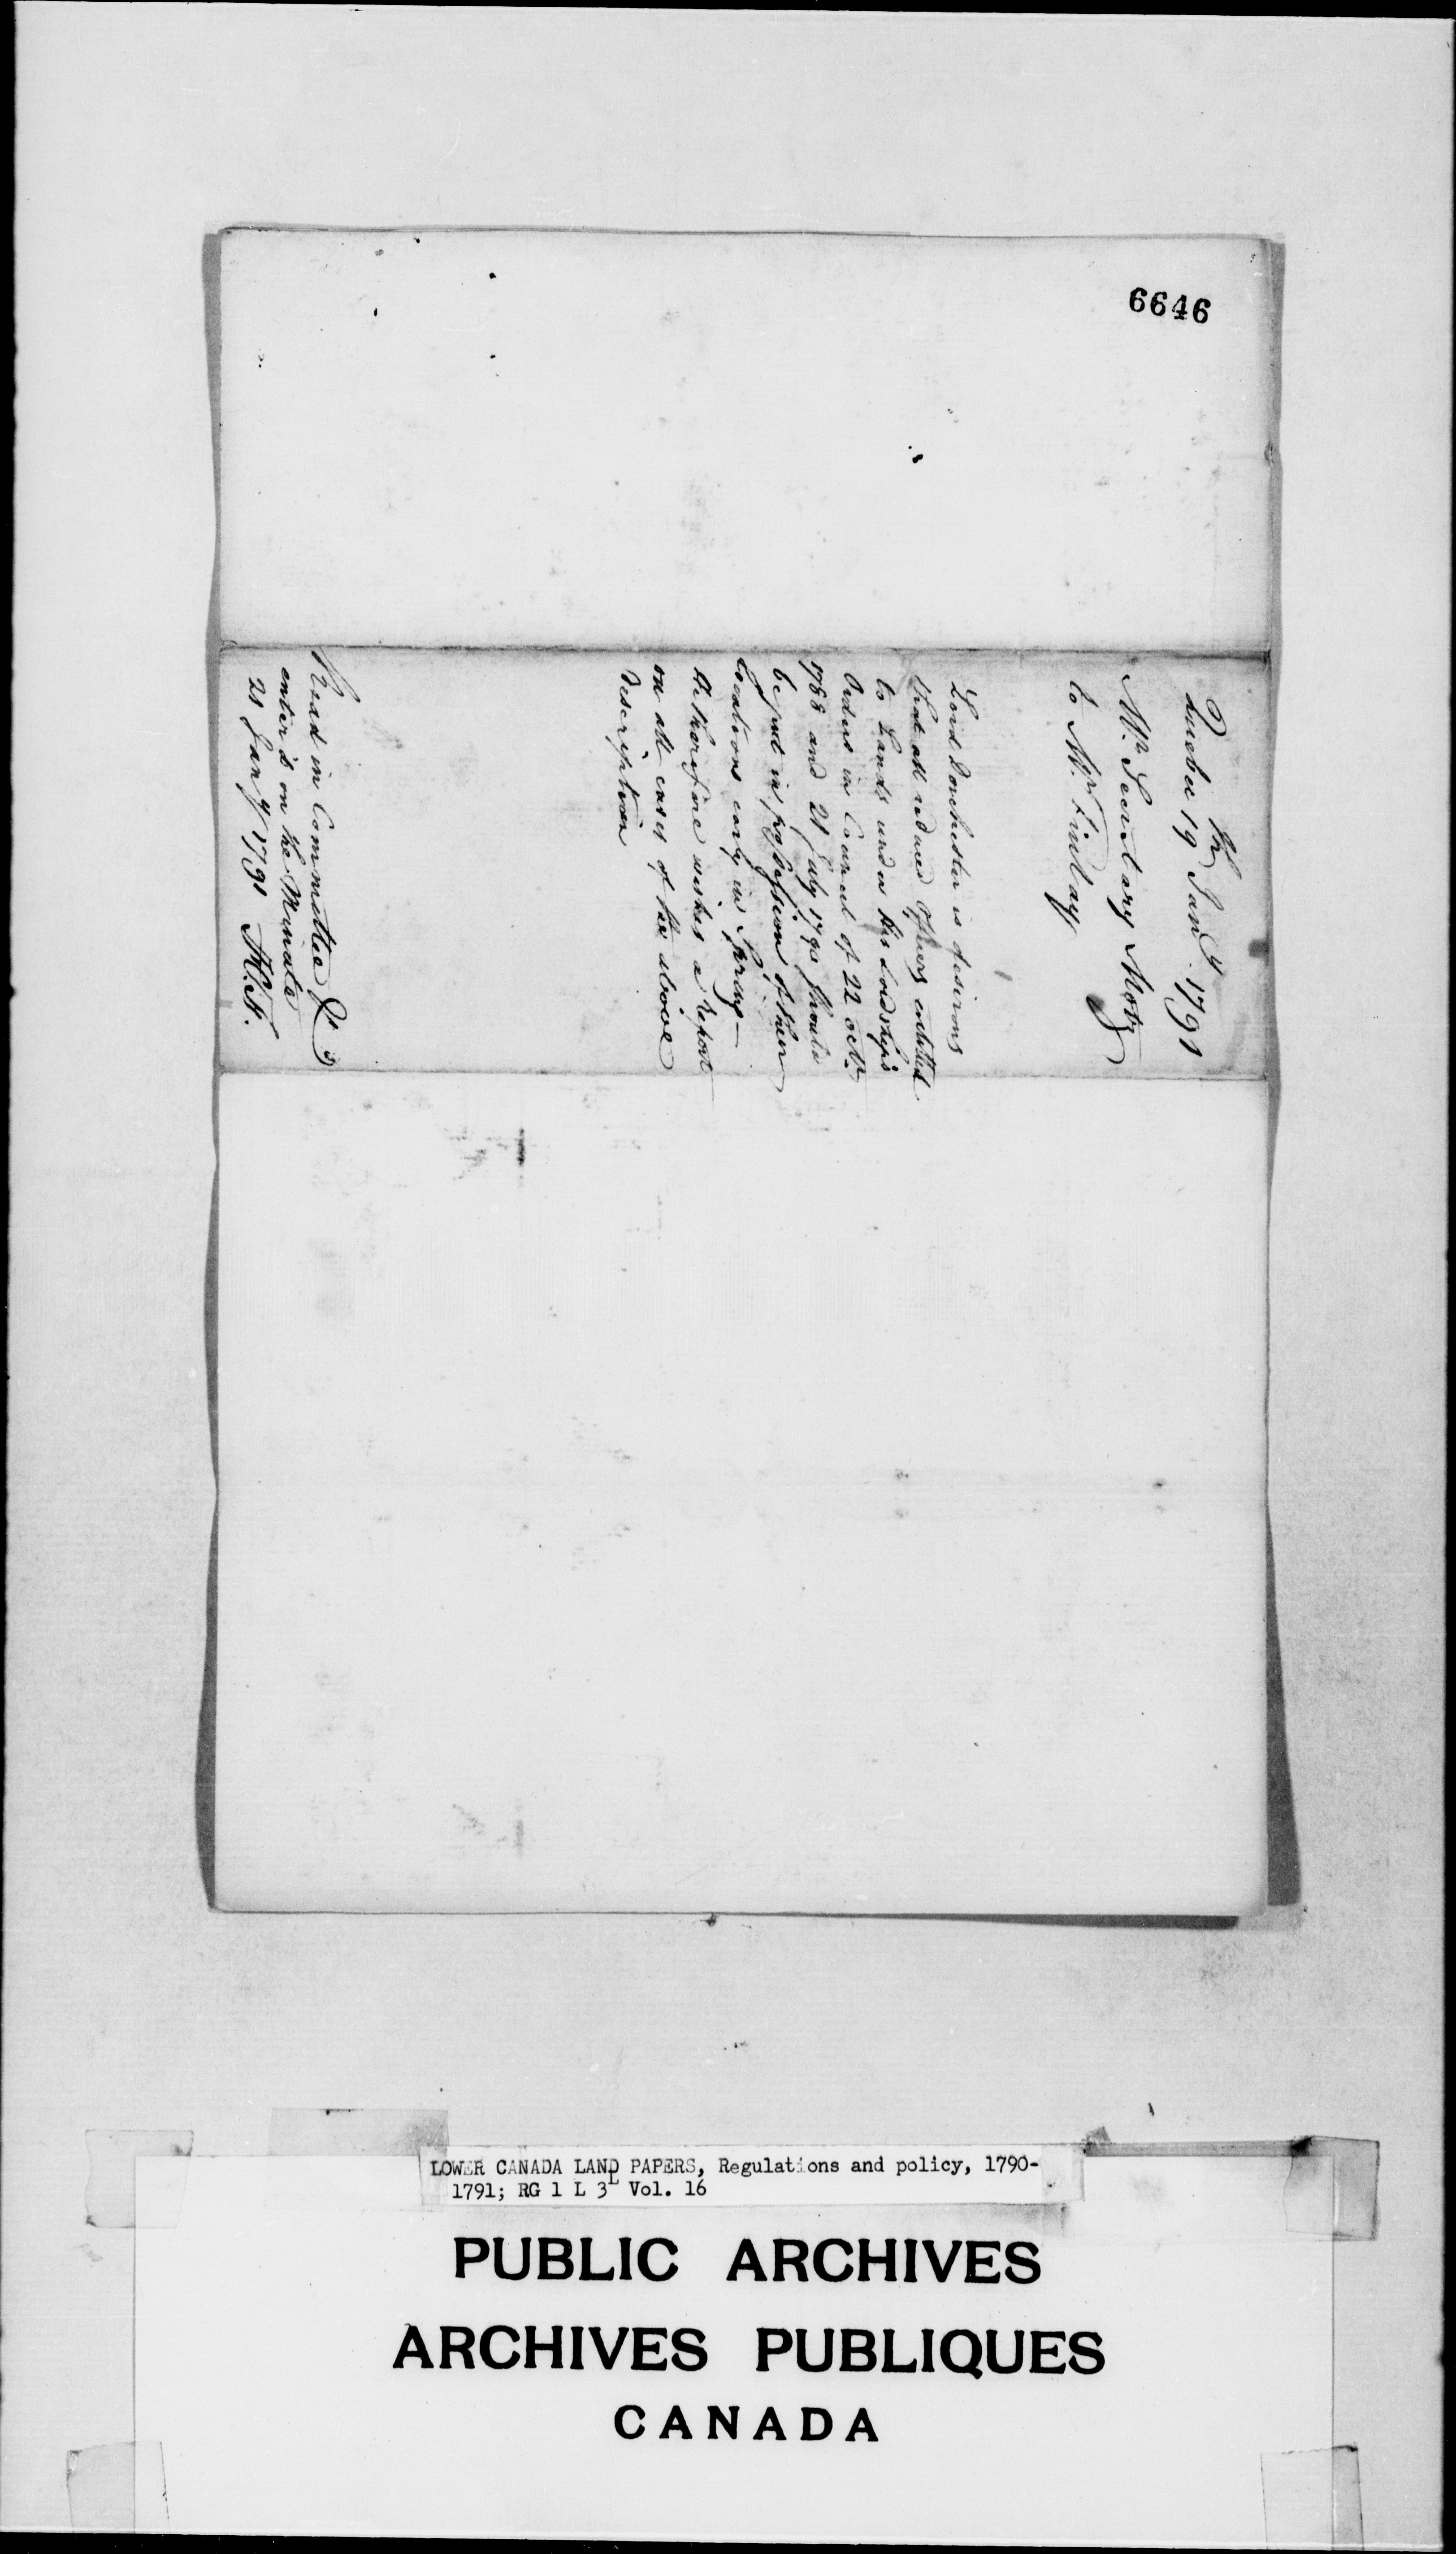 6646
Quebec 19th Jany. 1791
Mr. Secretary Motz
to Mr. Finlay
Lord Dorchester is desirous
that all reduced officers entitled
to Lands under His Lordship's
Orders in Council of 22 octr.
1788 and 21 July 1790 should
be put in possession of their
locations early in Spring—
He therefore wishes a report
on all cases of the above
description
Read in Committee &
enter'd on the Minute
21 Jany 1791 H.F.
LOWER CANADA LAND PAPERS, Regulations and policy, 1790-
1791; RG 1 L 3L Vol. 16
PUBLIC ARCHIVES
ARCHIVES PUBLIQUES
CANADA